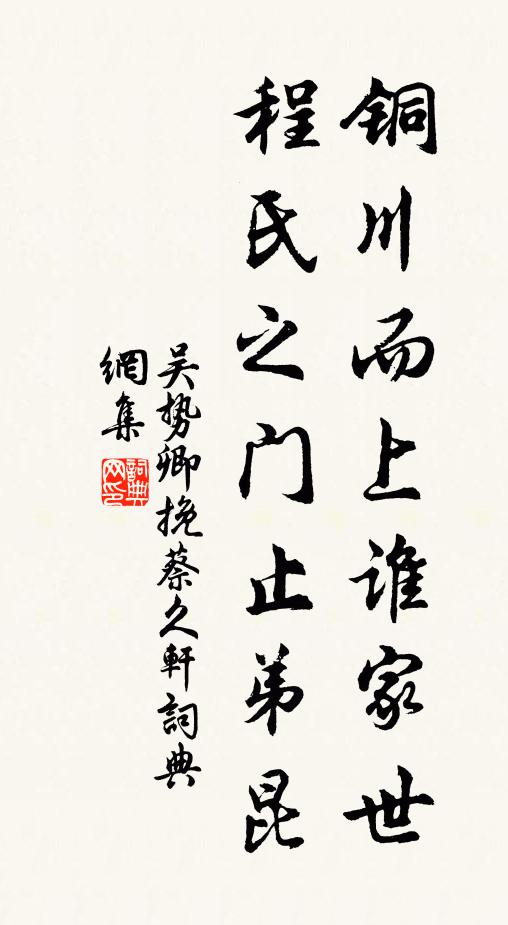 铜川而上谁家世
程氏之门止弟昆
吴势卿挽蔡久軒詞典
網集
詞典网印